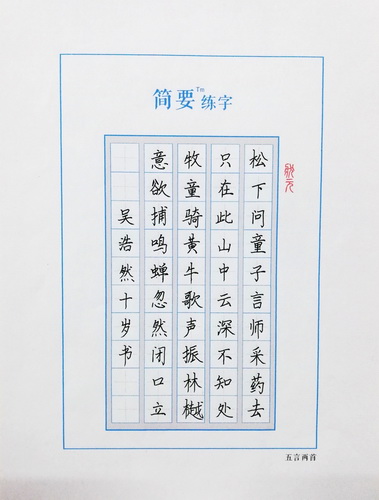 简要Tm练字
松下问童子言师采药去
只在此山中云深不知处
牧童骑黄牛歌声振林樾
意欲捕鸣蝉忽然闭口立
吴浩然十岁书
五言两首